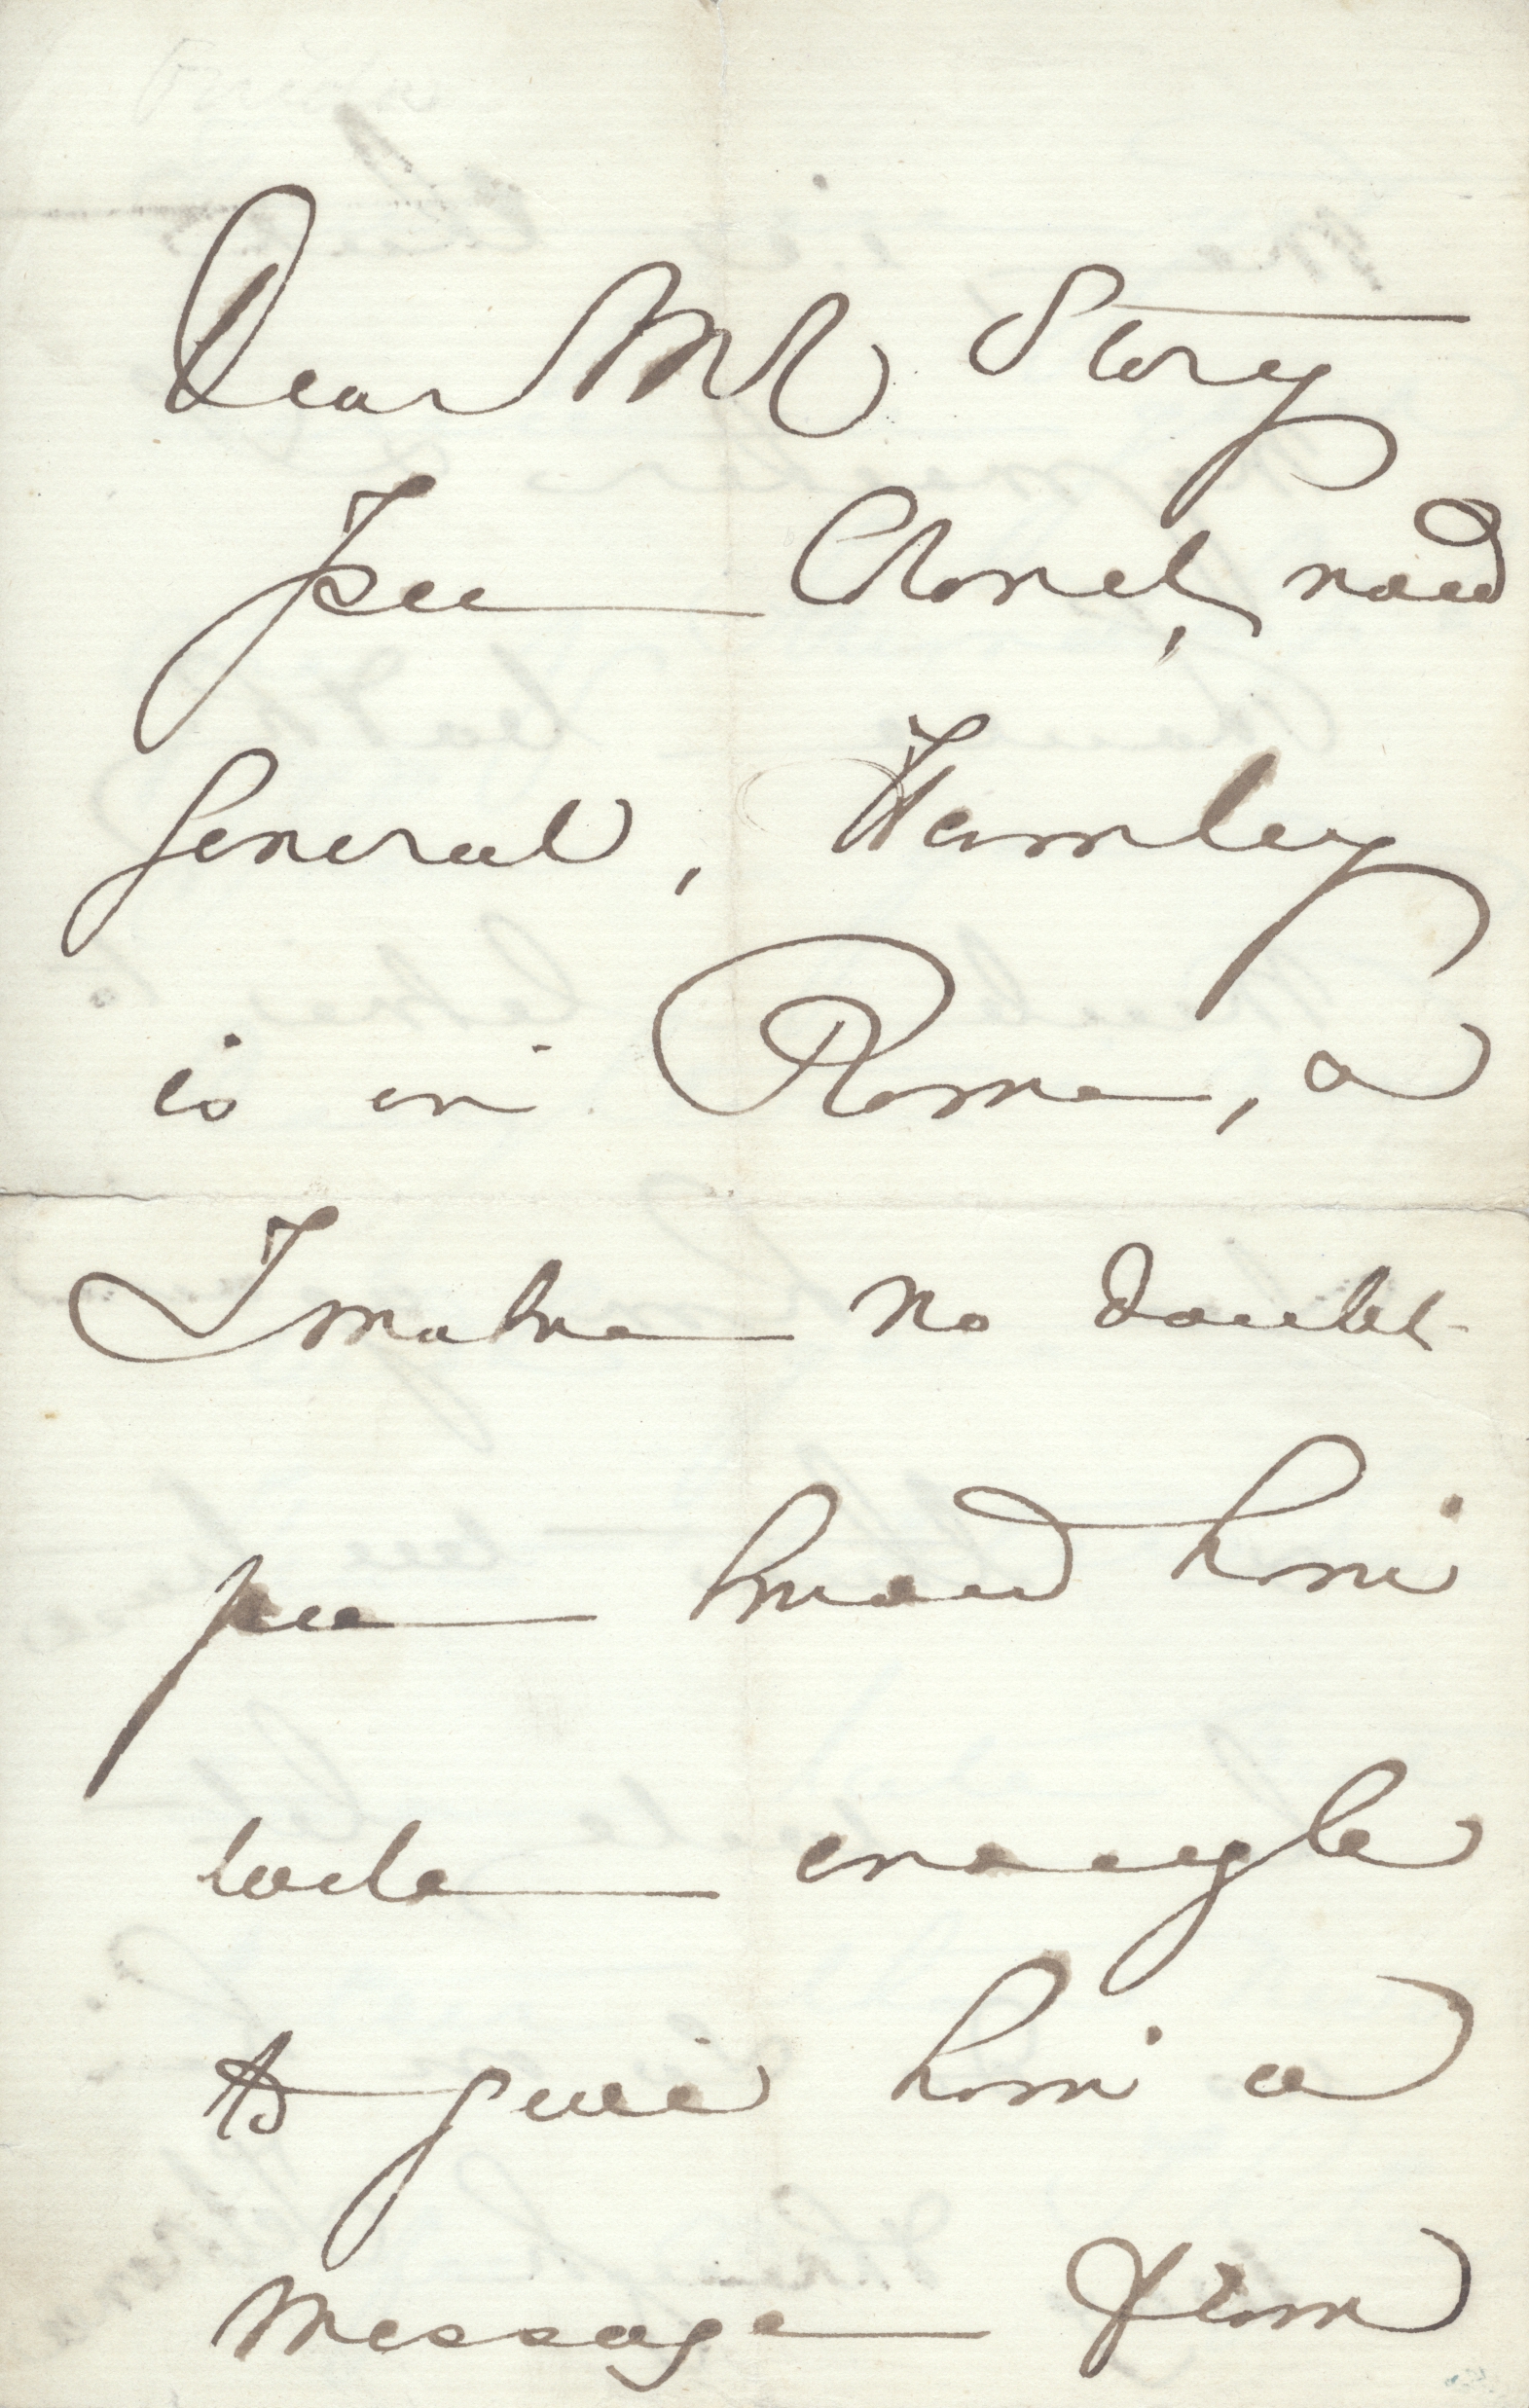 Dear Mr Story
I see Colonel, now
General, Hamley
is in Rome, &
I make no doubt
you know him
well enough
to give him a
message from